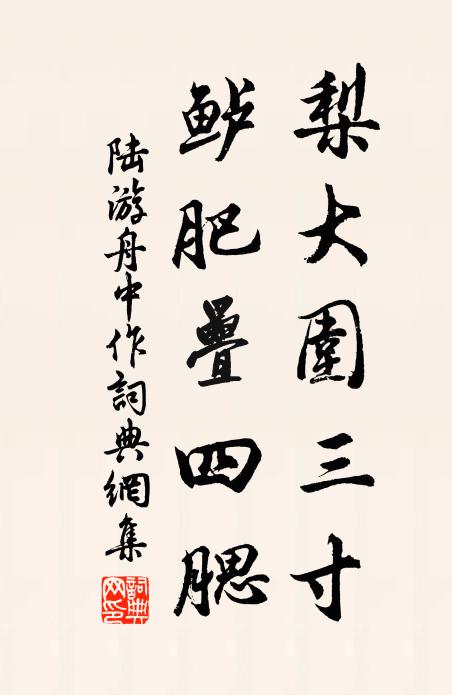 梨大圍三寸
鲈肥疊四腮
陆游舟中作詞典網集
詞典网印